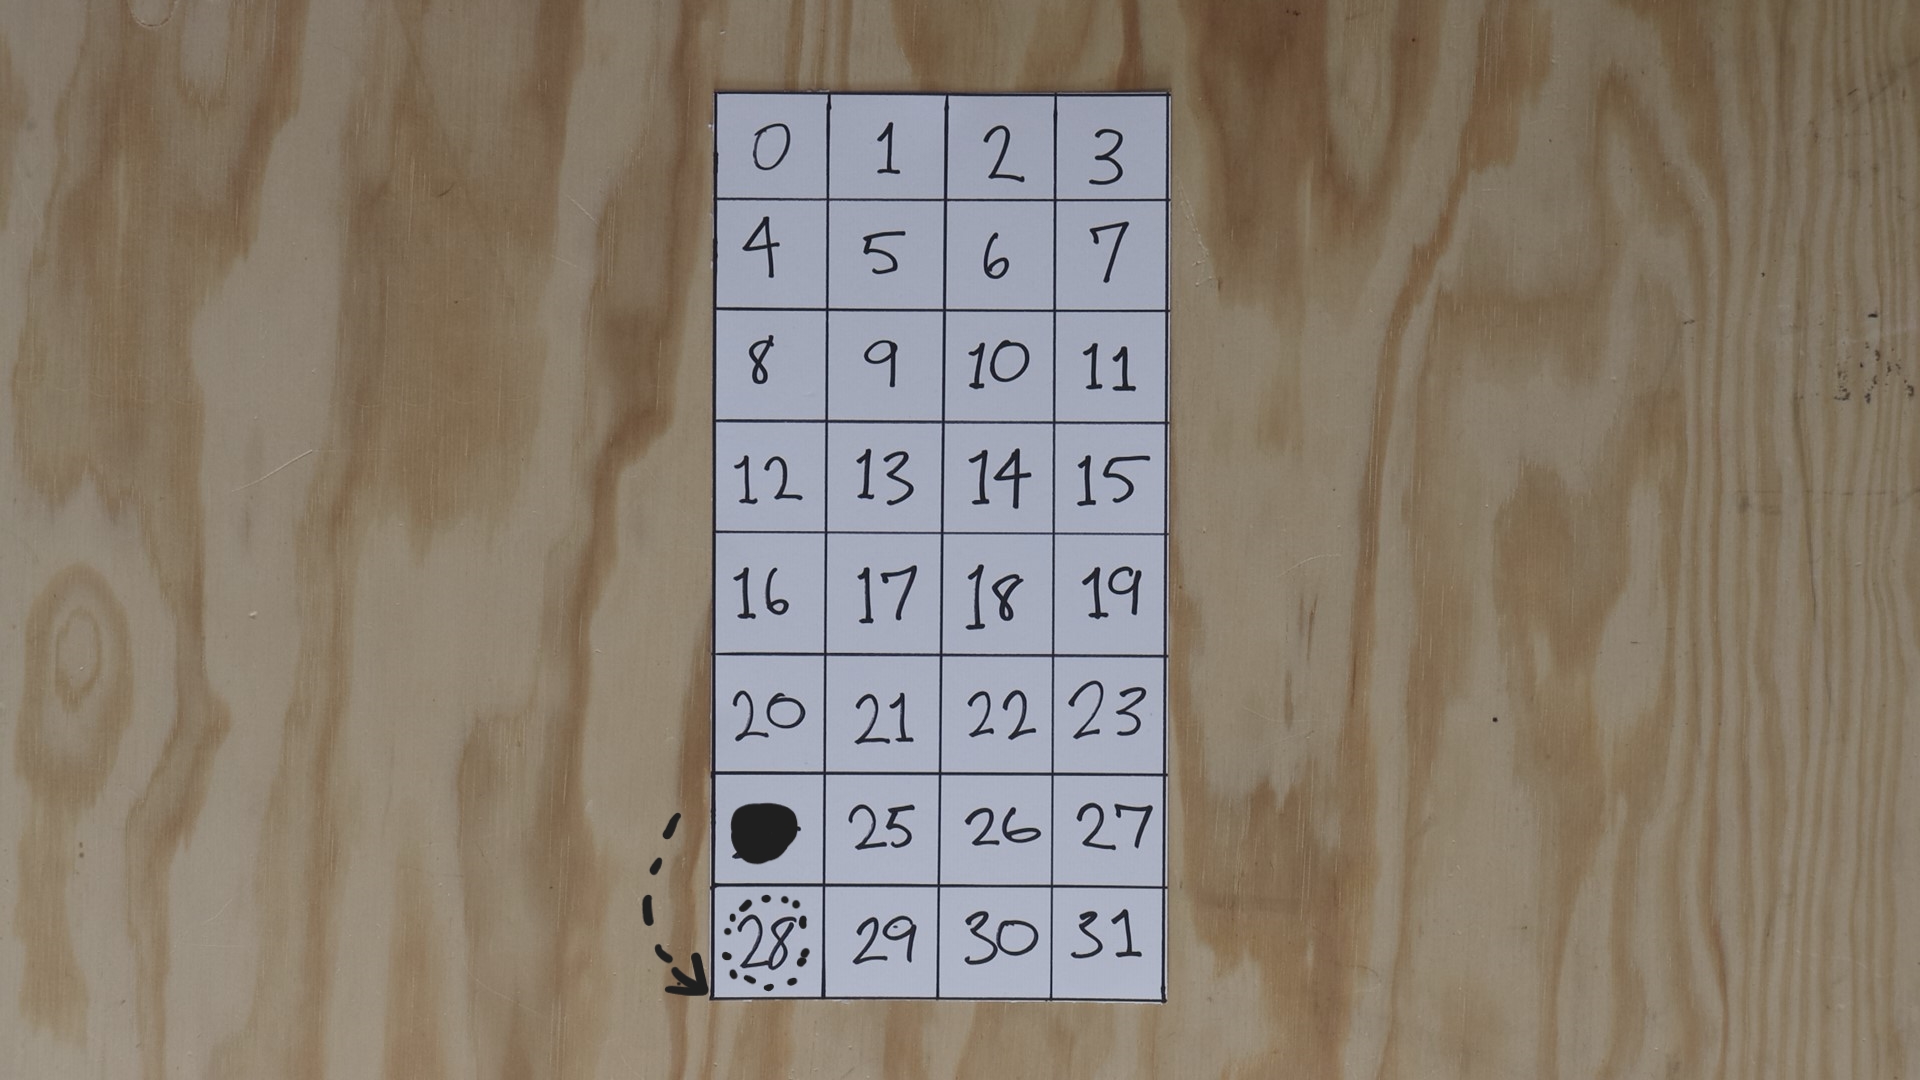 0 1 2 3
4 5 6 7
8 9 10 11
12 13 14 15
16 17 18 19
20 21 22 23
25 26 27
28 29 30 31